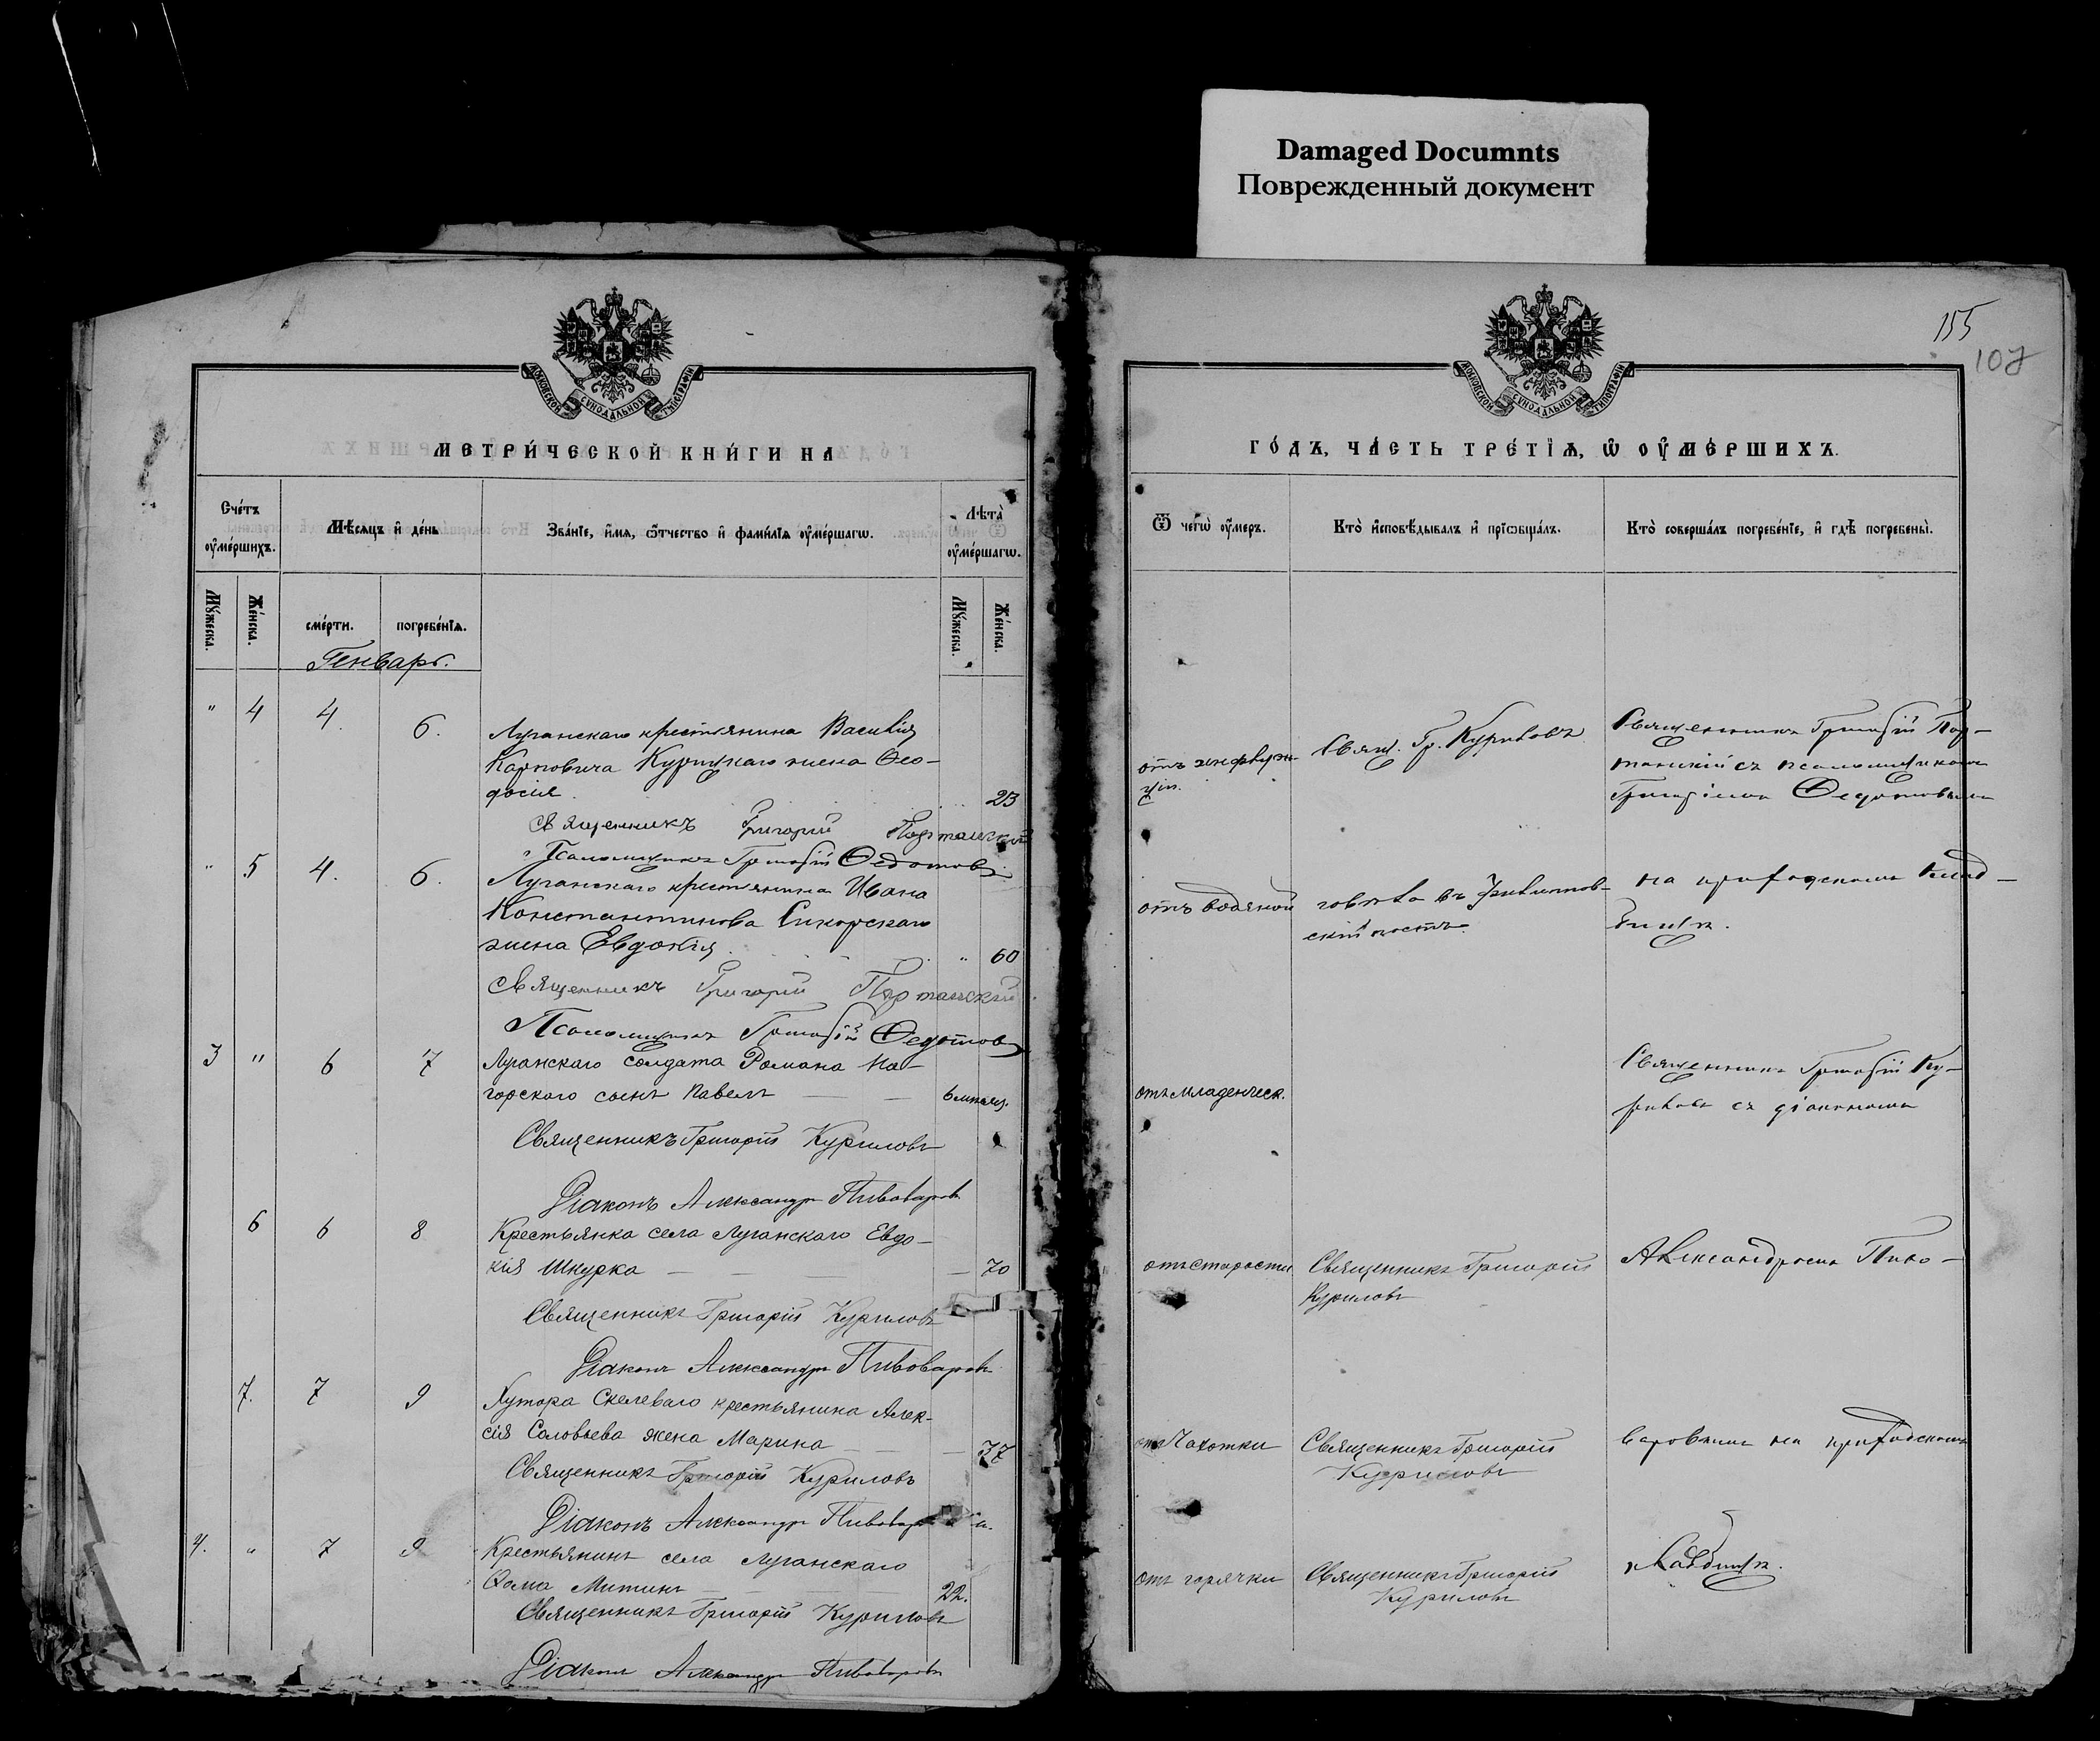 Damaged Documnts
Поврежденный документ
155
107
МОСКОВСКОЙ СѴНОДАЛЬНОЙ ТИПОГРАФІИ
МЕТРИ́ЧЕСКОЙ КНИ́ГИ НА
Сче́тъ ᲂу҆ме́ршихъ.
Мѣ́сяцъ и҆ де́нь
Зва́нїе, и҆́мѧ, ѻ҆́тчество и҆ фами́лїѧ ᲂу҆ме́ршагѡ.
Лѣта̀ ᲂу҆ме́ршагѡ.
Мꙋ́жеска.
Же́нска.
сме́рти.
погребе́нїѧ.
Мꙋ́жеска.
Же́нска.
Генварь.
" 4 4. 6.
Луганскаго крестьянина Василія
Карповича Курицкаго жена Ѳео-
досія 23
Священникъ Григорій Портанскій
Псаломщикъ Григорій Ѳедотовъ
" 5 4. 6.
Луганскаго крестьянина Ивана
Константинова Сикорскаго
жена Евдокія " 60
Священникъ Григорій Портанскій
Псаломщикъ Григорій Ѳедотовъ
3 " 6 7
Луганскаго солдата Романа На-
горскаго сынъ Павелъ — — 6 мѣсяц.
Священникъ Григорій Куриловъ
Діаконъ Александръ Пивоваровъ
6 6 8
Крестьянка села Луганскаго Евдо-
кія Шкурка — — — 70
Священникъ Григорій Куриловъ
Діаконъ Александръ Пивоваровъ
7. 7 9
Хутора Скелеваго крестьянина Алек-
сія Соловьева жена Марина — — 37
Священникъ Григорій Куриловъ
Діаконъ Александръ Пивоваровъ
4. " 7 9
Крестьянинъ села Луганскаго
Ѳома Митинъ — 22.
Священникъ Григорій Куриловъ
Діаконъ Александръ Пивоваровъ
МОСКОВСКОЙ СѴНОДАЛЬНОЙ ТИПОГРАФІИ
ГО́ДЪ, ЧА́СТЬ ТРЕ́ТЇѦ, Ѡ҆ ОУ҆МЕ́РШИХЪ.
Ѿ чегѡ̀ ᲂу҆́меръ.
Кто̀ и҆сповѣ́дывалъ и҆ прїѡбща́лъ.
Кто̀ соверша́лъ погребе́нїе, и҆ гдѣ̀ погребены̀.
отъ инфлуэн-
ціи.
Свящ. Гр. Куриловъ
Священникъ Григорій Пор-
танскій съ псаломщикомъ
Григоріемъ Ѳедотовымъ
отъ водяной
говѣла въ Филипов-
скій постъ.
на приходскомъ клад-
бищѣ.
отъ младенческ.
Священникъ Григорій Ку-
риловъ съ діакономъ
отъ старости
Священникъ Григорій
Куриловъ
Александромъ Пиво-
отъ Чахотки
Священникъ Григорій
Куриловъ
варовымъ на приходскомъ
отъ горячки
Священникъ Григорій
Куриловъ
кладбищѣ.